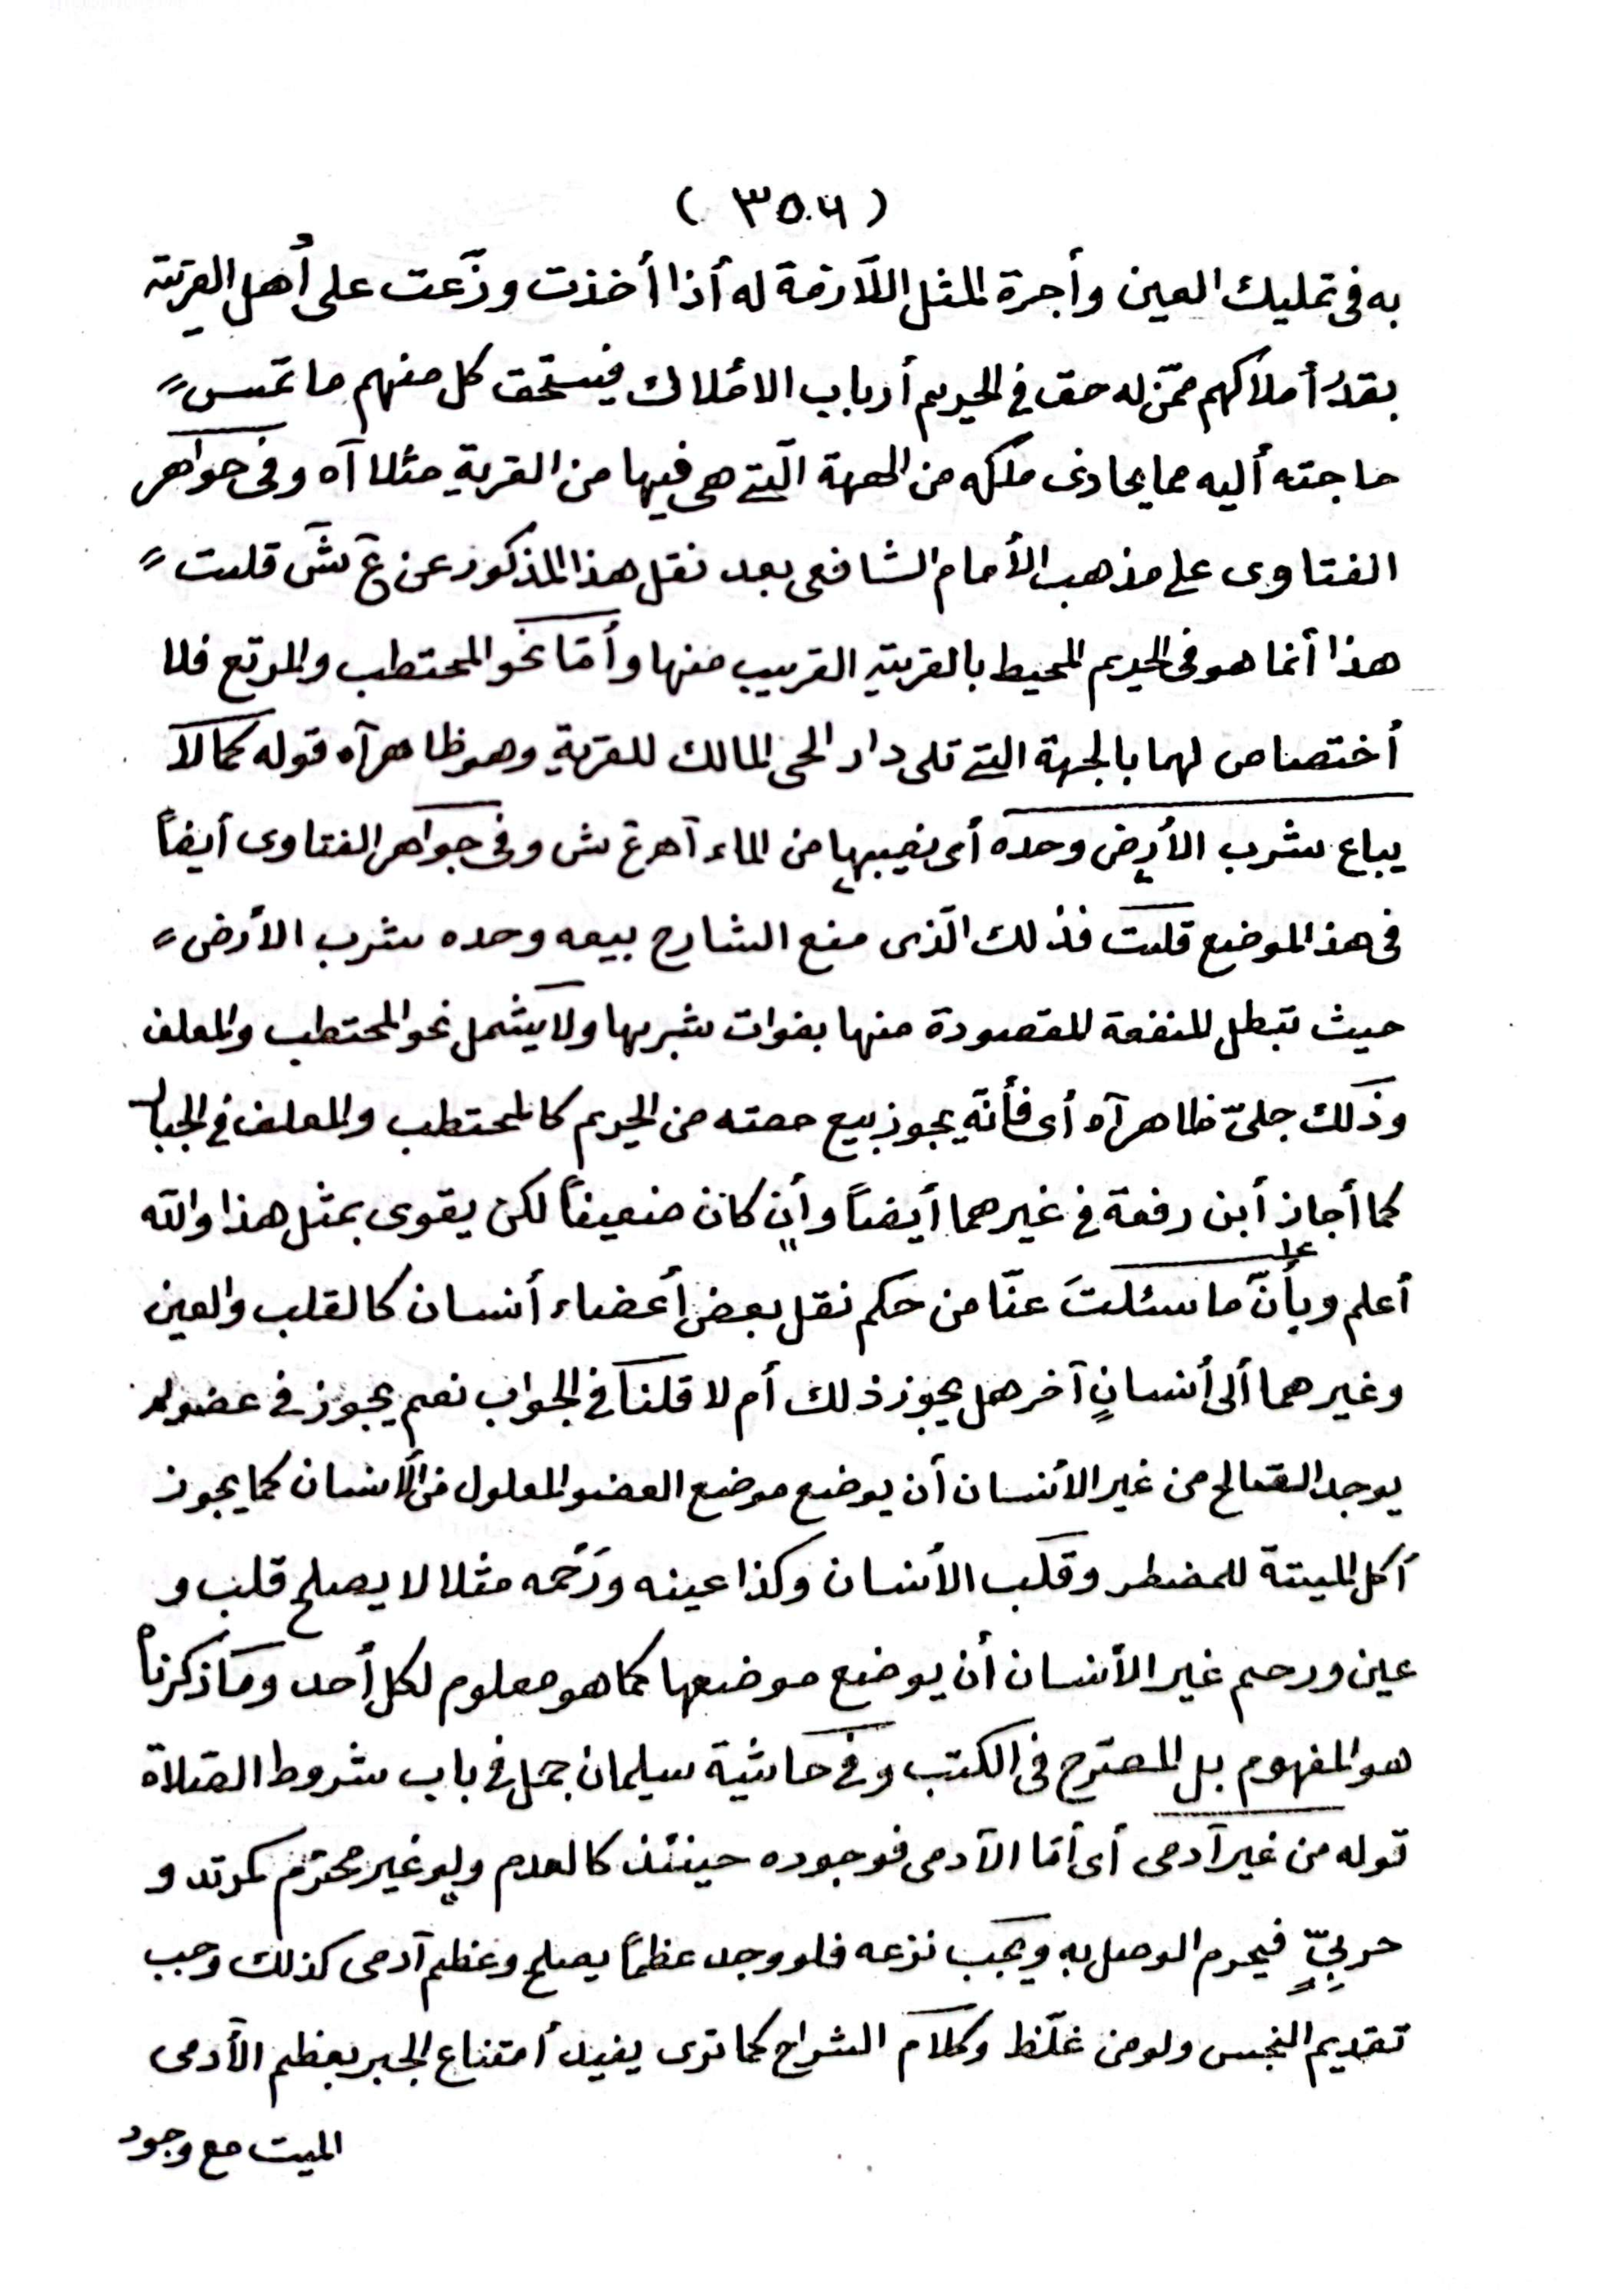 ( ٣٥٦ )
به فى تمليك العين وأجرة المثل اللّازمة له أذا أخذت وزّعت على أهل القرية
بقدر أملاكهم ممّن له حق فى الحريم أرباب الاملاك فيستحق كل منهم ما تمس
حاجته أليه مما يحاذى ملكه من الجهة الّتى هى فيها من القرية مثلا آه وفى جواهر
الفتاوى على مذهب الأمام الشافعى بعد نقل هذا المذكور عن ع ش قلت
هذا أنما هو فى الحريم المحيط بالقرية القريب منها وأمّا نحو المحتطب والمرتع فلا
أختصاص لهما بالجهة التى تلى دار الحى المالك للقرية وهو ظاهر آه قوله كما لا
يباع شرب الأرض وحده أى نصيبها من الماء آه ع ش وفى جواهر الفتاوى أيضاً
فى هذ الموضع قلت فذلك الّذى منع الشارح بيعه وحده شرب الأرض
حيث تبطل المنفعة المقصودة منها بفوات شربها ولا يشمل نحو المحتطب والمعلف
وذلك جلىّ ظاهر آه أى فأنّه يجوز بيع حصته من الحريم كالمحتطب والمعلف فى الجبال
كما أجاز أبن رفعة فى غيرهما أيضاً وأن كان ضعيفاً لكن يقوى بمثل هذا والله
أعلم وبأنّ ما سئلتَ عنّا من حكم نقل بعض أعضاء أنسان كالقلب والعين
وغيرهما ألى أنسانٍ آخر هل يجوز ذلك أم لا قلنا فى الجواب نعم يجوز فى عضو لم
يوجد الصّالح من غير الأنسان أن يوضع موضع العضو المعلول من الأنسان كما يجوز
أكل الميتة للمضطر وقلب الأنسان وكذا عينه ورَحْمه مثلا لا يصلح قلب و
عين ورحم غير الأنسان أن يوضع موضعها كما هو معلوم لكل أحد وما ذكرناه
هو المفهوم بل المصرّح فى الكتب وفى حاشية سليمان جمل فى باب شروط الصّلاة
قوله من غير آدمى أى أمّا الآدمى فوجوده حينئذ كالعدم ولو غير محترم كمرتد و
حربىٍّ فيحرم الوصل به ويجب نزعه فلو وجد عظماً يصلح وعظم آدمى كذلك وجب
تقديم النجس ولو من غلّظ وكلام الشراح كما ترى يفيد أمتناع الجبر بعظم الآدمى
الميت مع وجود